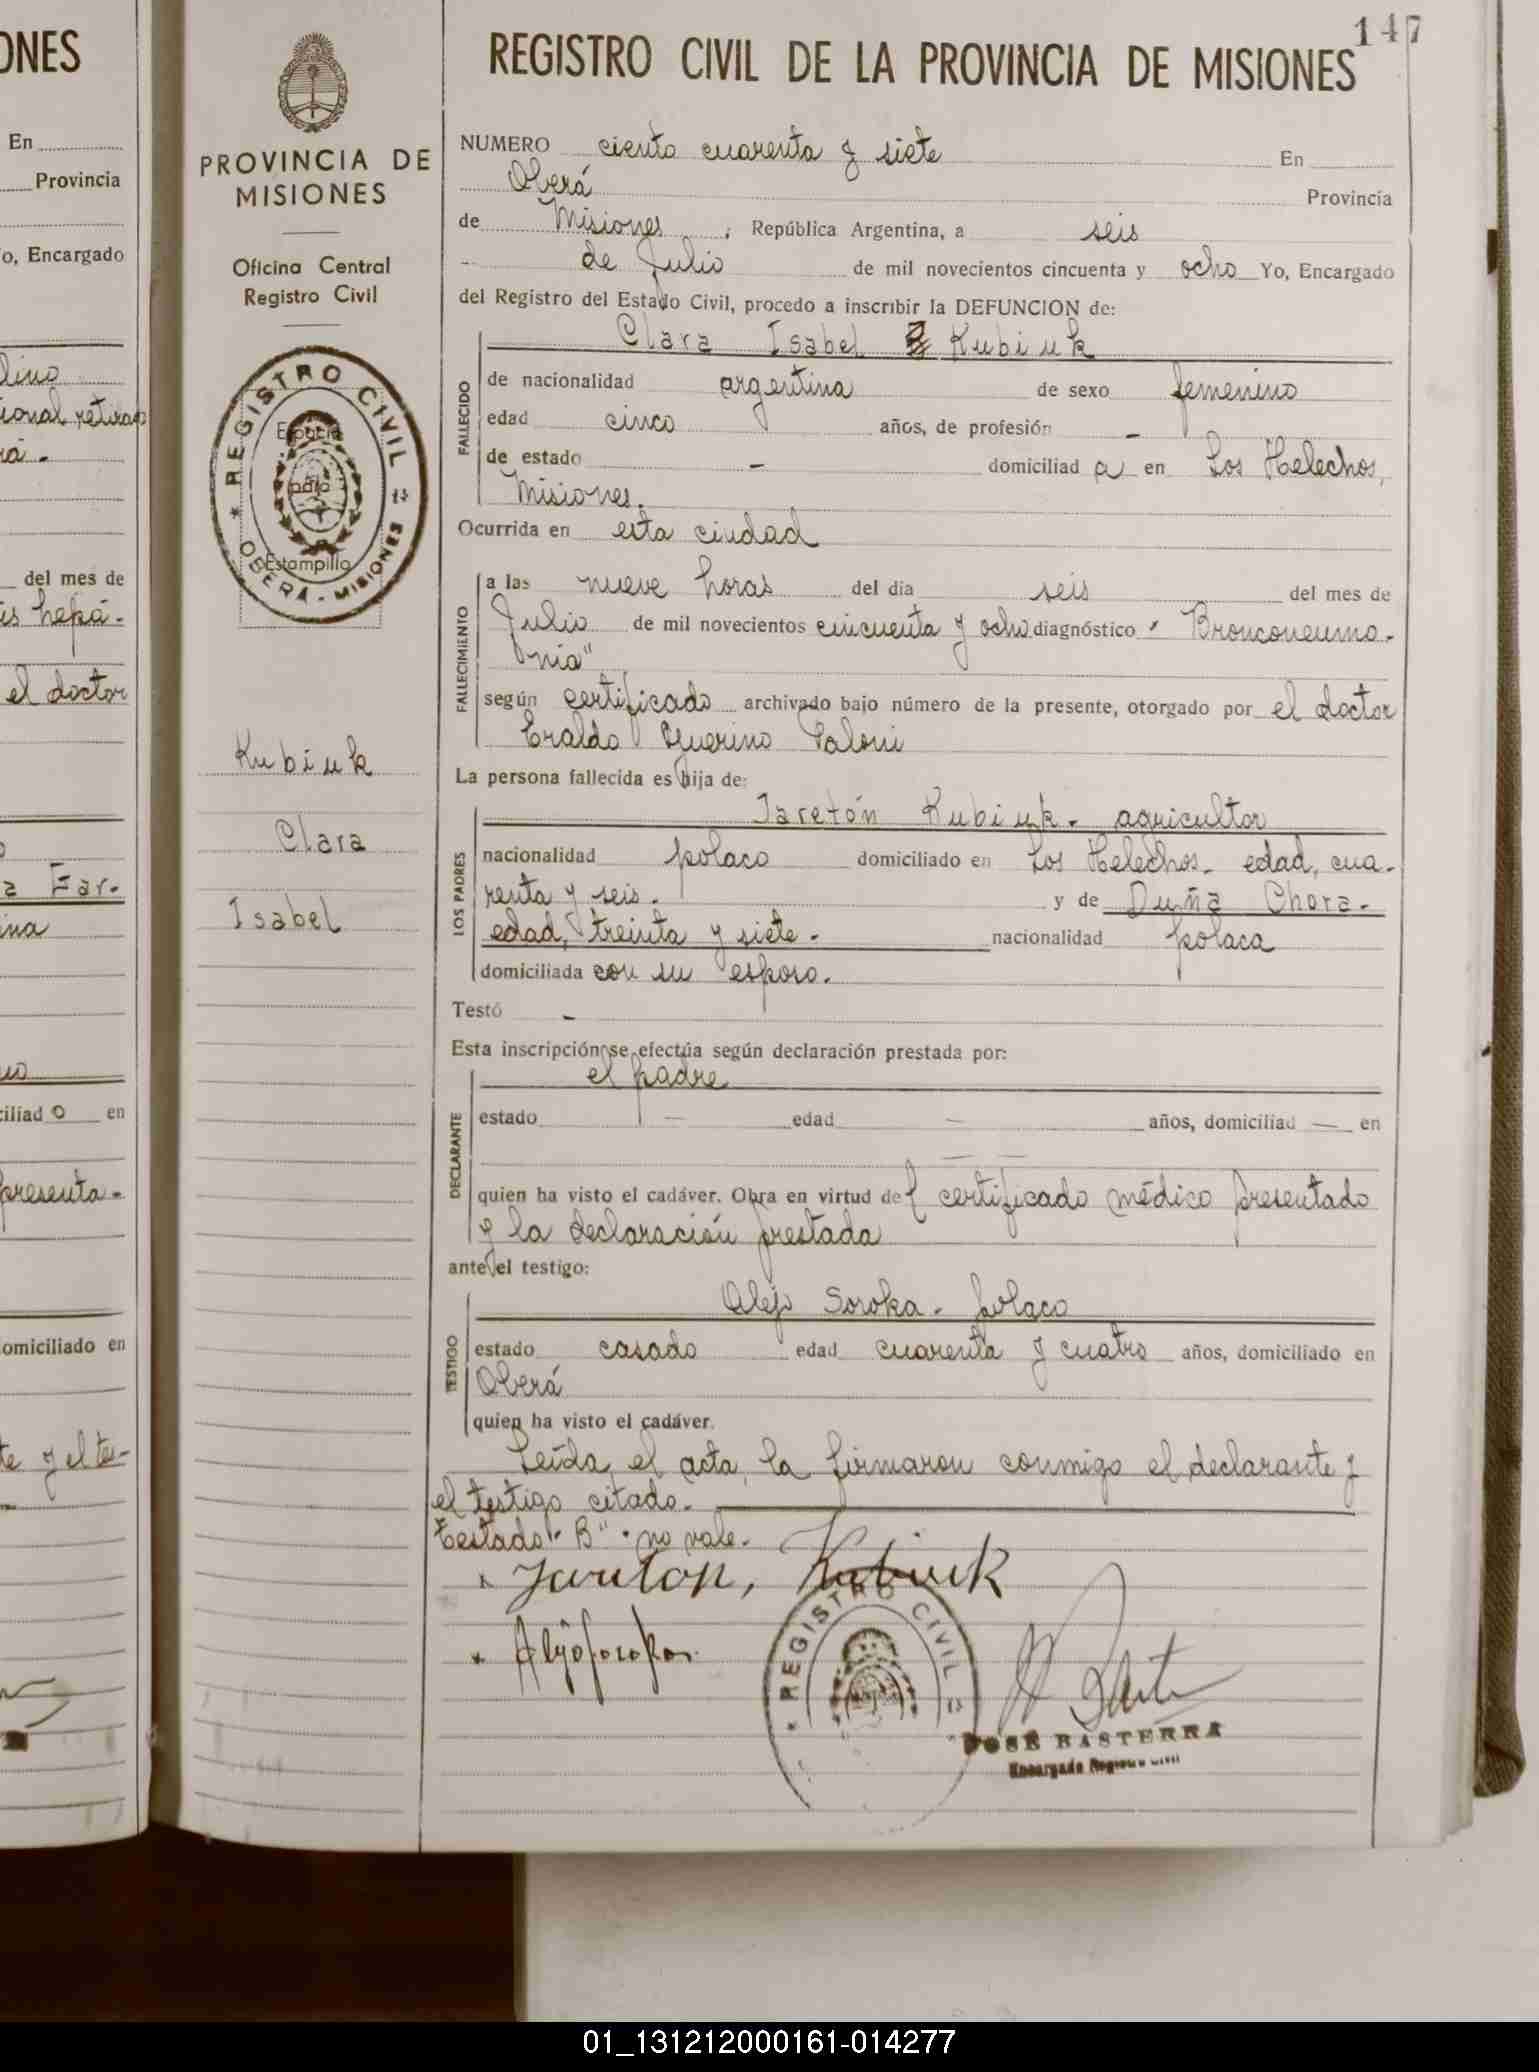 ONES
En
Provincia
o, Encargado
lino
cional retirado
rá -
del mes de
is hepá-
el doctor
a Far-
ina
ciliad o en
presenta-
omiciliado en
te y el tes-
PROVINCIA DE
MISIONES
Oficina Central
Registro Civil
* REGISTRO CIVIL
Espacio
para
Estampilla
OBERA - MISIONES
Kubiuk
Clara
Isabel
147
REGISTRO CIVIL DE LA PROVINCIA DE MISIONES
NUMERO ciento cuarenta y siete En
Oberá Provincia
de Misiones, República Argentina, a seis
de Julio de mil novecientos cincuenta y ocho Yo, Encargado
del Registro del Estado Civil, procedo a inscribir la DEFUNCION de:
Clara Isabel B Kubiuk
FALLECIDO
de nacionalidad argentina de sexo femenino
edad cinco años, de profesión -
de estado - domiciliad a en Los Helechos,
Misiones.
Ocurrida en esta ciudad
FALLECIMIENTO
a las nueve horas del día seis del mes de
Julio de mil novecientos cincuenta y ocho diagnóstico "Bronconeumo-
nia"
según certificado archivado bajo número de la presente, otorgado por el doctor
Eraldo Guerino Saloni
La persona fallecida es hija de:
LOS PADRES
Jaretón Kubiuk - agricultor
nacionalidad polaco domiciliado en Los Helechos - edad, cua-
renta y seis. y de Duña Chora -
edad, treinta y siete - nacionalidad polaca
domiciliada con su esposo.
Testó -
Esta inscripción se efectúa según declaración prestada por:
DECLARANTE
el padre
estado — edad — años, domiciliad — en
— —
quien ha visto el cadáver. Obra en virtud del certificado médico presentado
y la declaración prestada
ante el testigo:
TESTIGO
Alejo Soroka - polaco
estado casado edad cuarenta y cuatro años, domiciliado en
Oberá
quien ha visto el cadáver.
Leída el acta, la firmaron conmigo el declarante y
el testigo citado.
Testado "B" - no vale.
Jareton, Kubiuk
* REGISTRO CIVIL
JOSÉ BASTERRA
Encargado Registro Civil
01_131212000161-014277